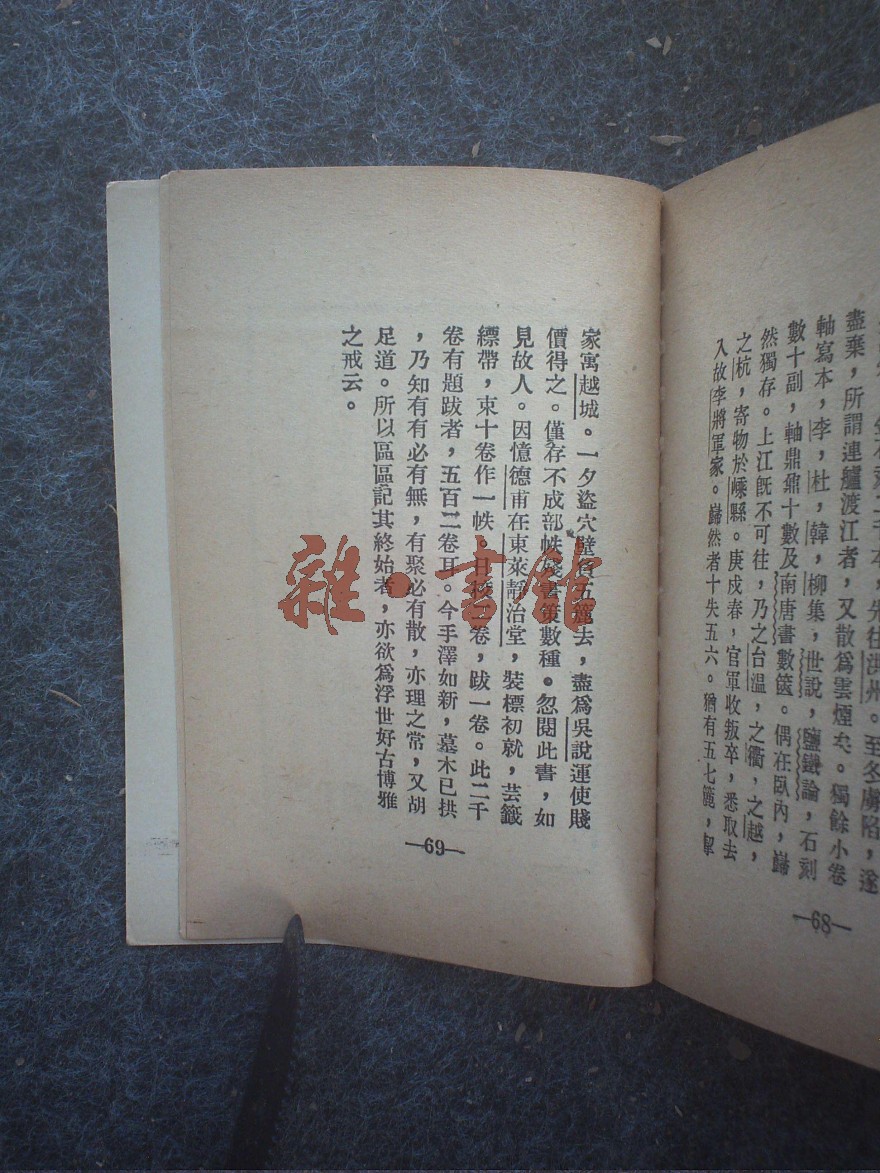 盡棄，所謂連艫渡江者，又散爲雲煙矣。獨餘小卷
軸寫本，李，杜，韓，柳集，世說，鹽鐵論，石刻
數十副，軸鼎鼐十數及南唐書數篋。偶在臥內，巋
然獨存。上江旣不可往，乃之台溫，之衢，之越，
之杭，寄物於嵊縣。庚戌春，官軍收叛卒，悉取去
入故李將軍家。巋然者十失五六。猶有五七簏，挈
—68—
家寓越城。一夕盜穴壁負五簏去，盡爲吳說運使賤
價得之。僅存不成部帙殘書策數種。忽閱此書，如
見故人。因憶德甫在東萊靜治堂，裝標初就，芸籤
縹帶，束十卷作一帙。日校二卷，跋一卷。此二千
卷有題跋者，五百二卷耳。今手澤如新，墓木已拱
，乃知有有必有無，有聚必有散，亦理之常，又胡
足道。所以區區記其終始者，亦欲爲浮世好古博雅
之戒云。
—69—
雜·書館